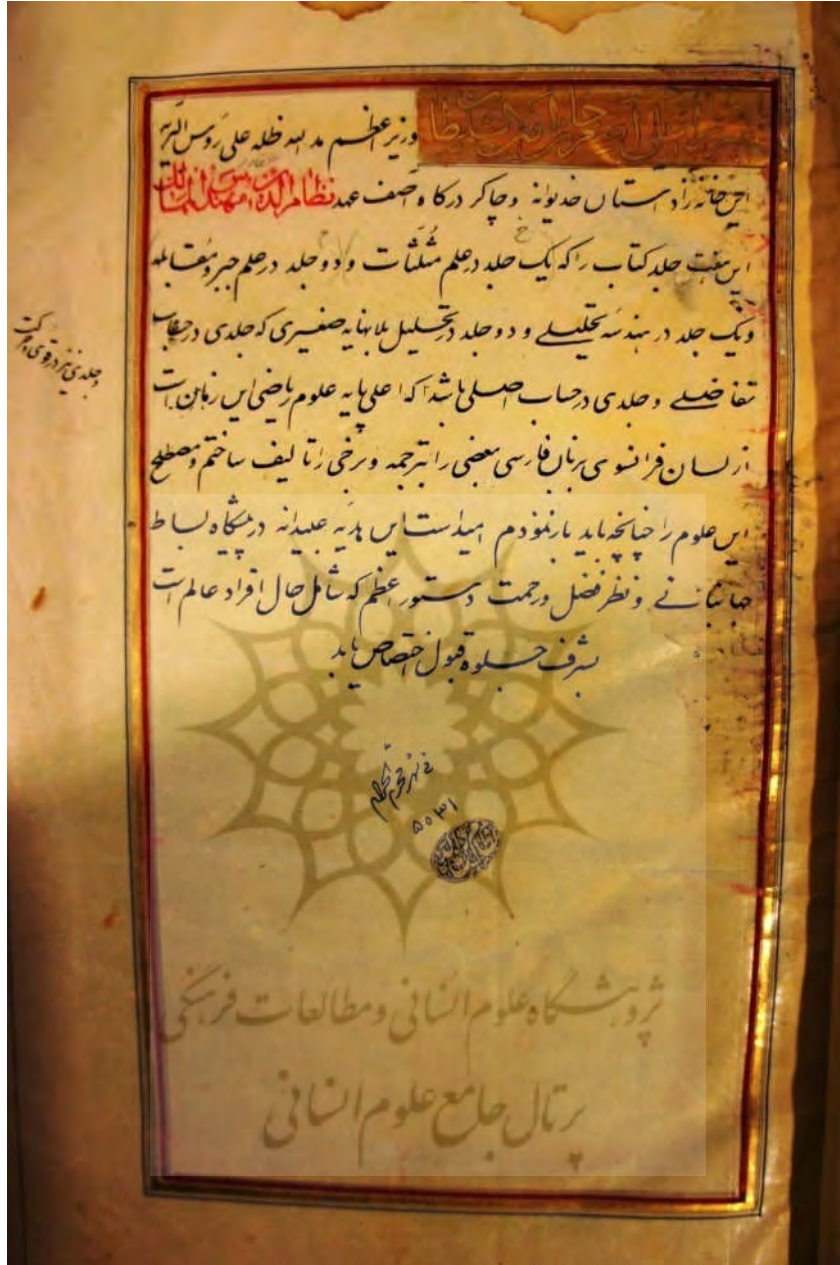 وزیر اعظم مد الله ظله علی رؤس البریه
این خانه زاد استان خدیوانه و چاکر درگاه اصف عهد نظام الدین مهندس الممالک
این هفت جلد کتاب را که یک جلد در علم مثلثات و دو جلد در علم جبر و مقابله
و یک جلد در هندسه تحلیلے و دو جلد در تحلیل بلانهایه صغیری که جلدی در حساب
تفاضلے و جلدی در حساب اصلی باشد که اعلی پایه علوم ریاضی این زمان است
از لسان فرانسوی بزبان فارسی بعضی را ترجمه و برخی را تالیف ساختم و مصطلح
این علوم را چنانچه باید باز نمودم امید است این هدیه عبیدانه در پیشگاه بساط
جهانبانے و نظر فضل و رحمت دستور اعظم که شامل حال افراد عالم است
بشرف جلوه قبول اختصاص یابد
و جلدی نیز در قوی و حرکت
فی شهر محرم الحرام
۱۳۰۵
پژوهشگاه علوم انسانی و مطالعات فرهنگی
پرتال جامع علوم انسانی